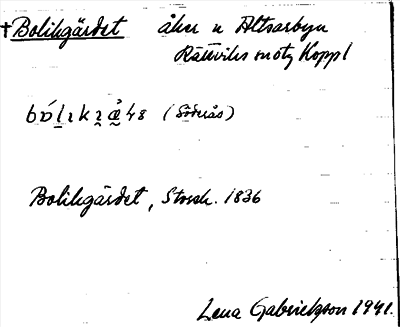 †Bolikgärdet åker n Altsarbyn
Rättviks mot Koppl
(Söderås)
Bolikgärdet, Storsk. 1836
Lena Gabrielsson 1941.